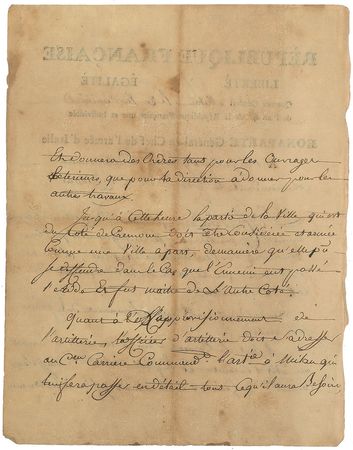 Et donnera des Ordres tant pour les Ouvrages
Exterieurs, que pour la direction a donner pour les
autres travaux.
Jusqu'à Cette heure la partie de la Ville qui est
du Coté de Cremone doit Etre Considerée et armée
Comme une Ville à part, de manière qu'elle pû
se deffendre dans le Cas que l'Ennemi eut passé
l'Adda & fut maitre de L'Autre Coté.
Quant à l'approvisionnement de
l'artillerie, d'artillerie doit s'adresser
au Cen Carriere Command. l'artie à Milan qui
lui fera passer en détail tout Ce qu'il aura Besoin,
RÉPUBLIQUE FRANÇAISE
LIBERTÉ ÉGALITÉ
BONAPARTE Général en Chef de l'armée d'Italie